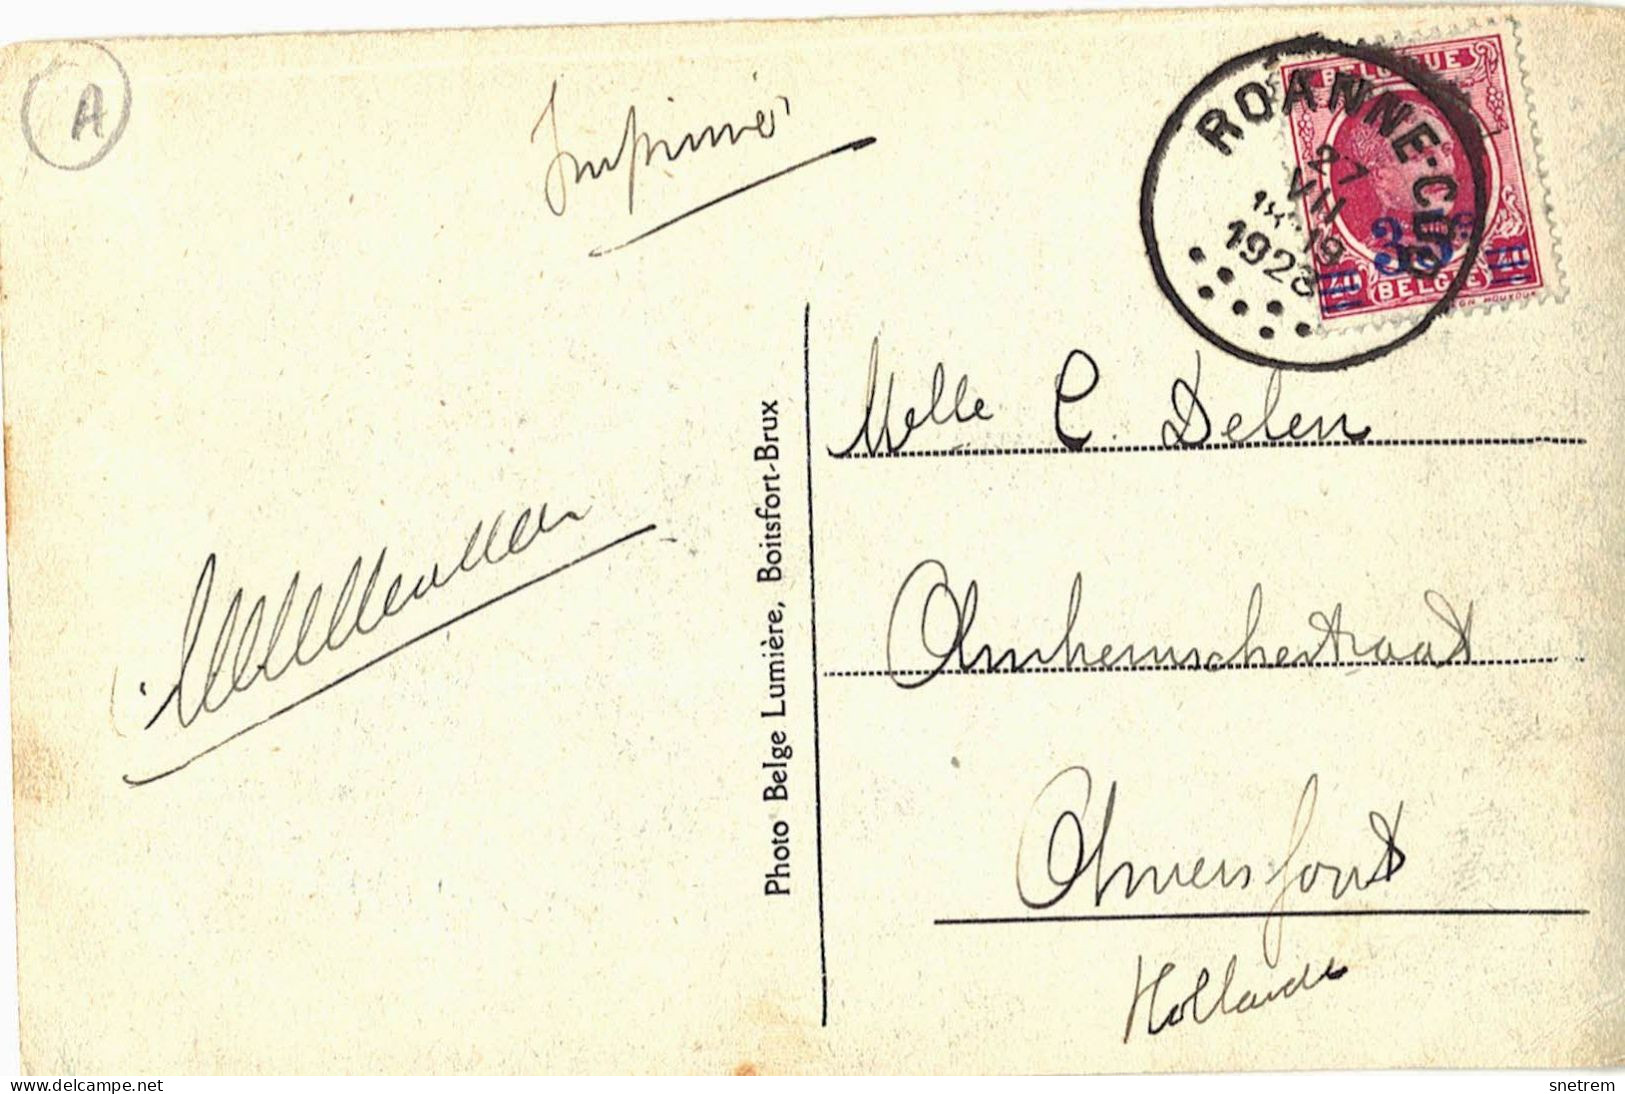 A
Imprimé
ROANNE-COO
27
VII
19
1928
BELGIQUE
35c
40 40
BELGIË
Melle C. Delen
Arnhemschestraat
Amersfoort
Hollande
Photo Belge Lumière, Boitsfort-Brux
www.delcampe.net
snetrem